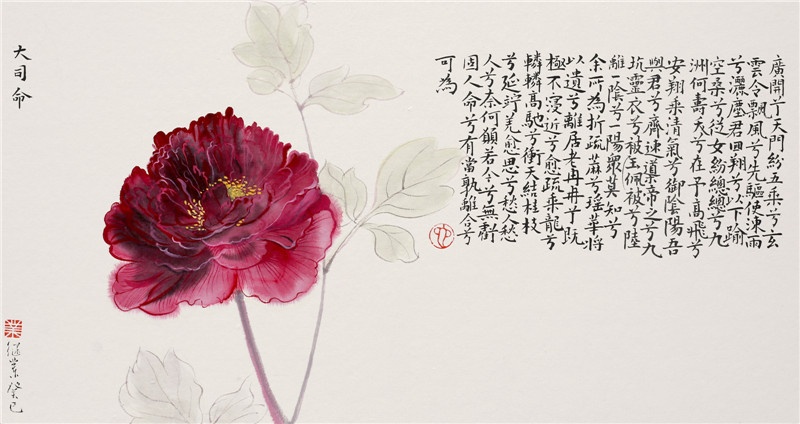 廣開兮天門紛五乘兮玄
雲令飄風兮先驅使涷雨
兮灑塵君回翔兮以下踰
空桑兮從女紛總總兮九
洲何壽夭兮在予高飛兮
安翔乘清氣兮御陰陽吾
與君兮齊速導帝之兮九
坑靈衣兮被玉佩被兮陸
離一陰兮一陽眾莫知兮
余所為折疏麻兮瑤華將
以遺兮離居老冉冉兮既
極不寖近兮愈疏乘龍兮
轔轔高馳兮衝天結桂枝
兮延竚羌愈思兮愁人愁
人兮奈何願若今兮無虧
固人命兮有當孰離合兮
可為
大司命
業
继業癸巳